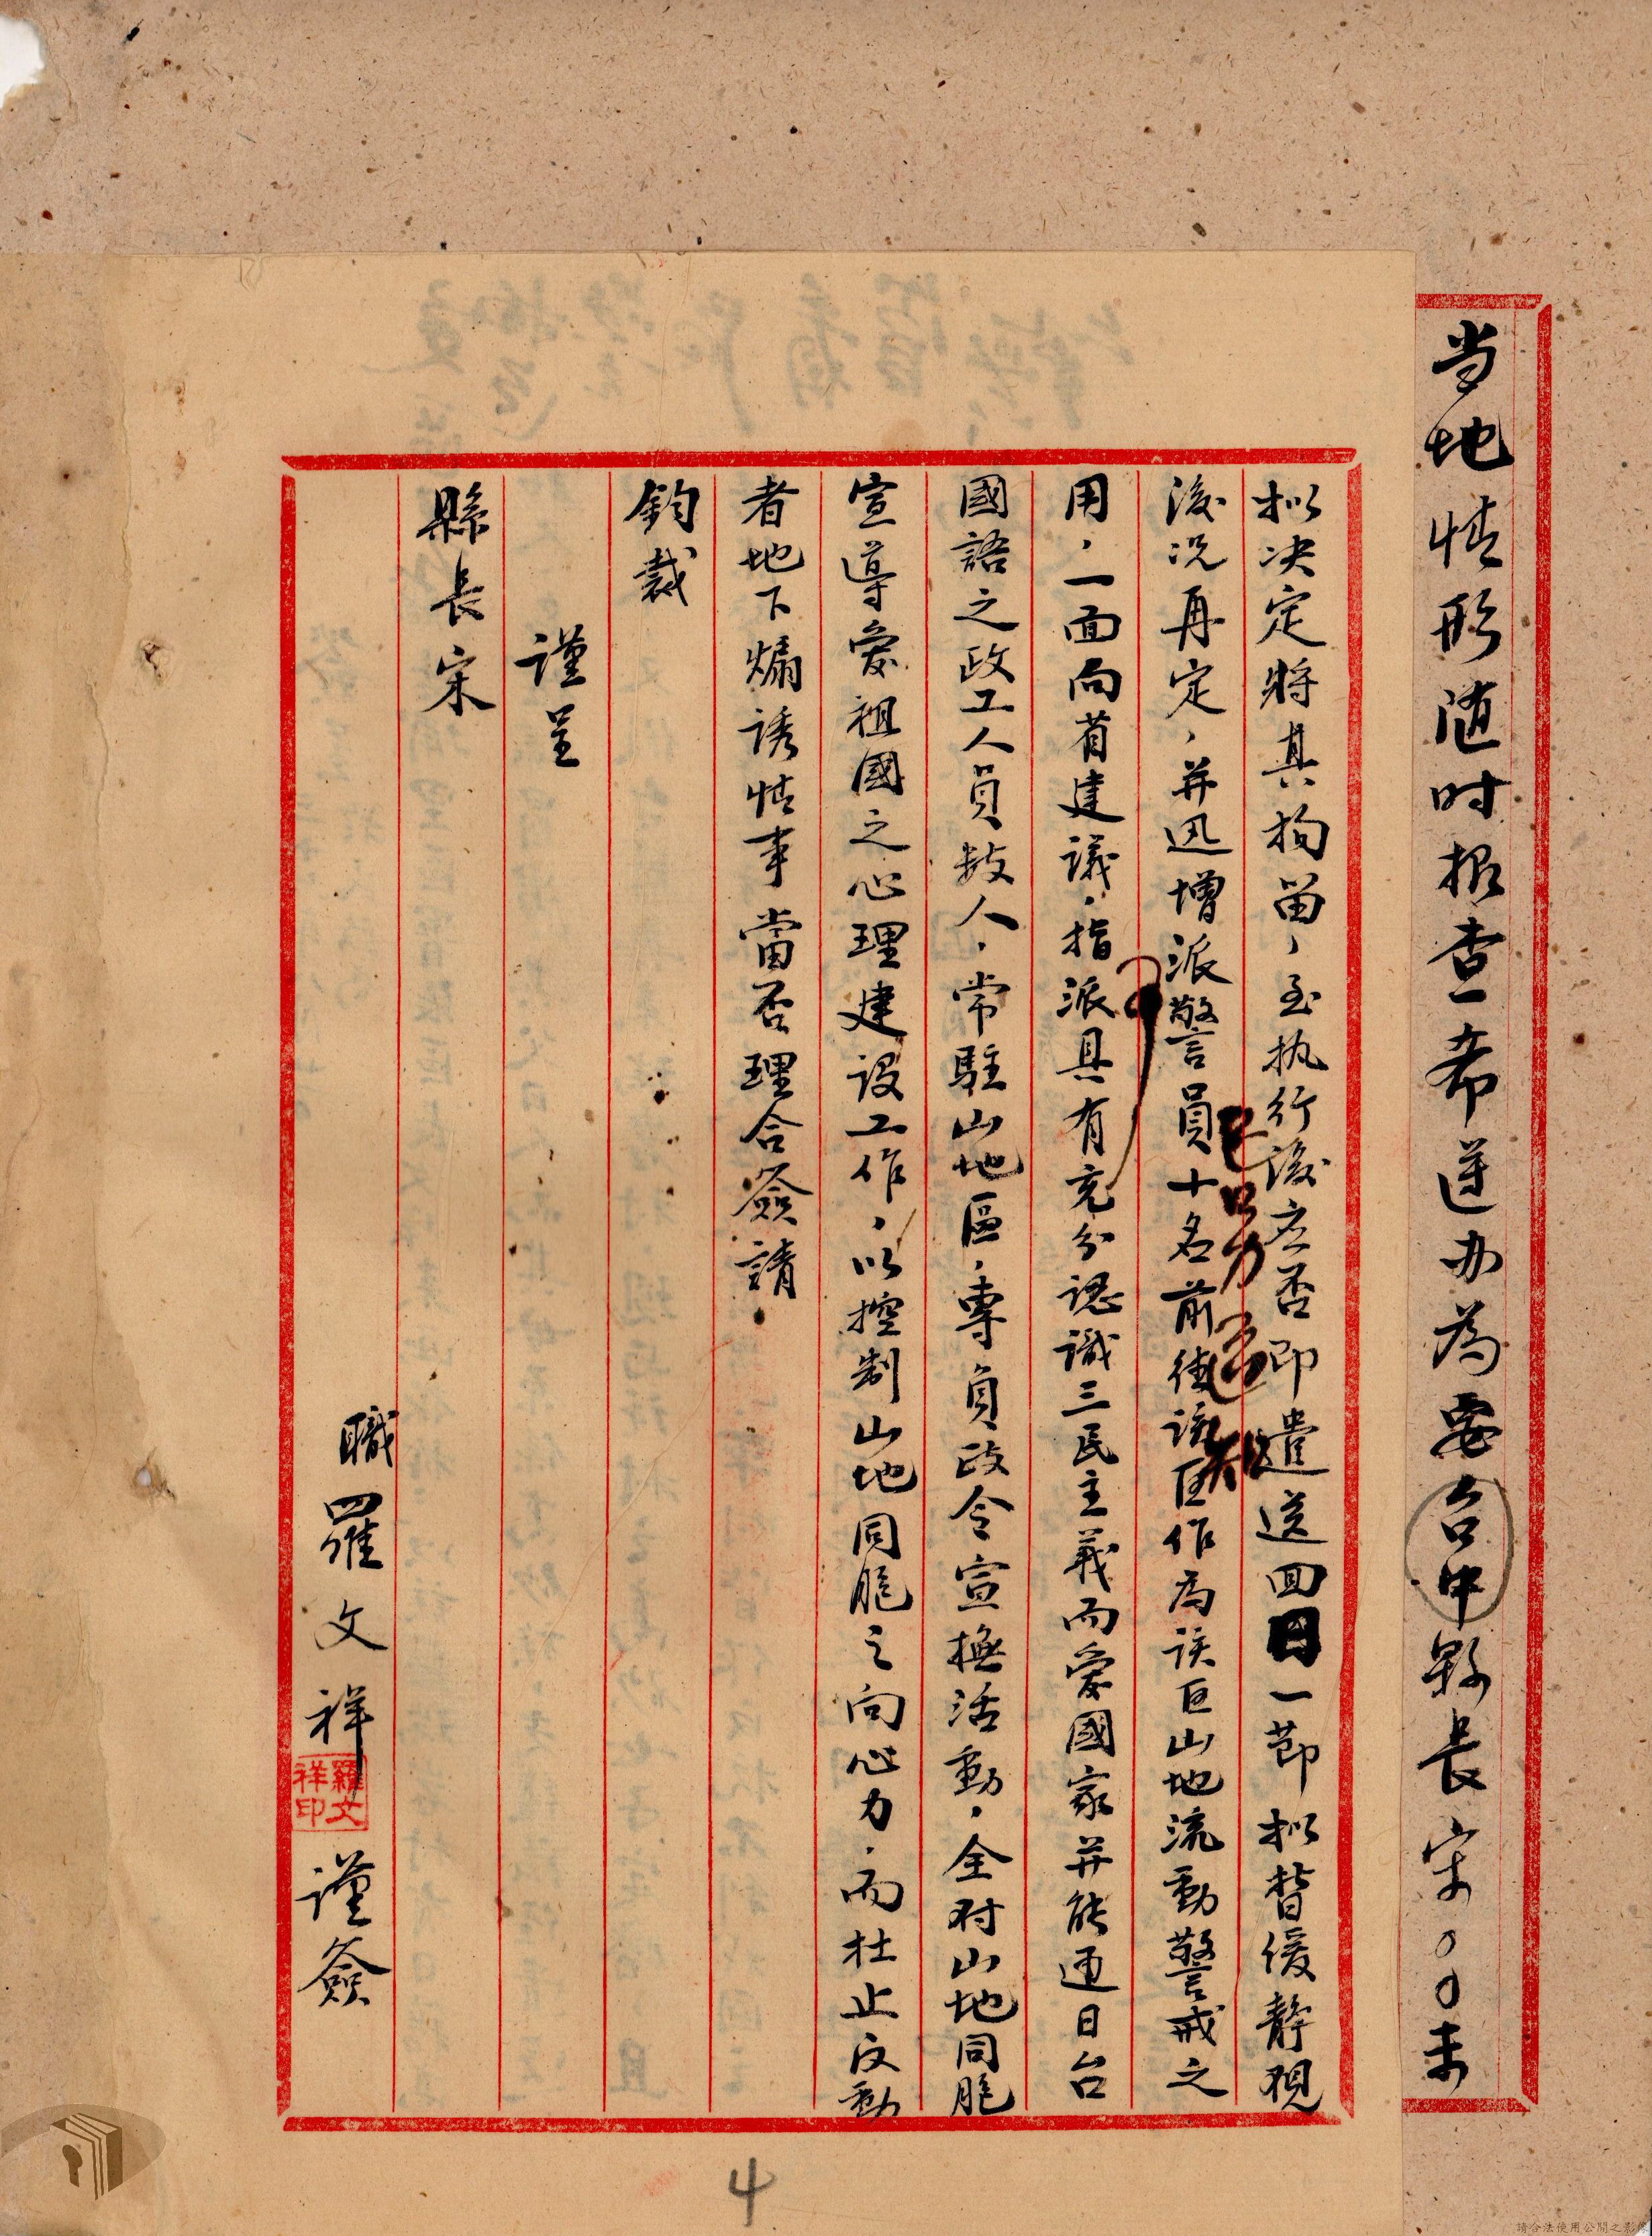 当地情形随时报查希遵办為要台中縣長宋〇〇未
拟决定将其拘留，至执行後应否即遣送回一節拟暂缓静观
後况再定，并迅增派警員十名前往該区作為该区山地流動警戒之
用，一面向省建議，指派具有充分認識三民主義而愛國家并能通日台
國語之政工人員数人，常駐山地區，專負政令宣撫活動，全对山地同胞
宣導愛祖國之心理建設工作，以控制山地同胞之向心力，而杜止反動
者地下煽诱情事當否理合簽請
鈞裁
謹呈
縣長宋
職羅文祥謹簽
羅文祥印
4
請合法使用公開之影像